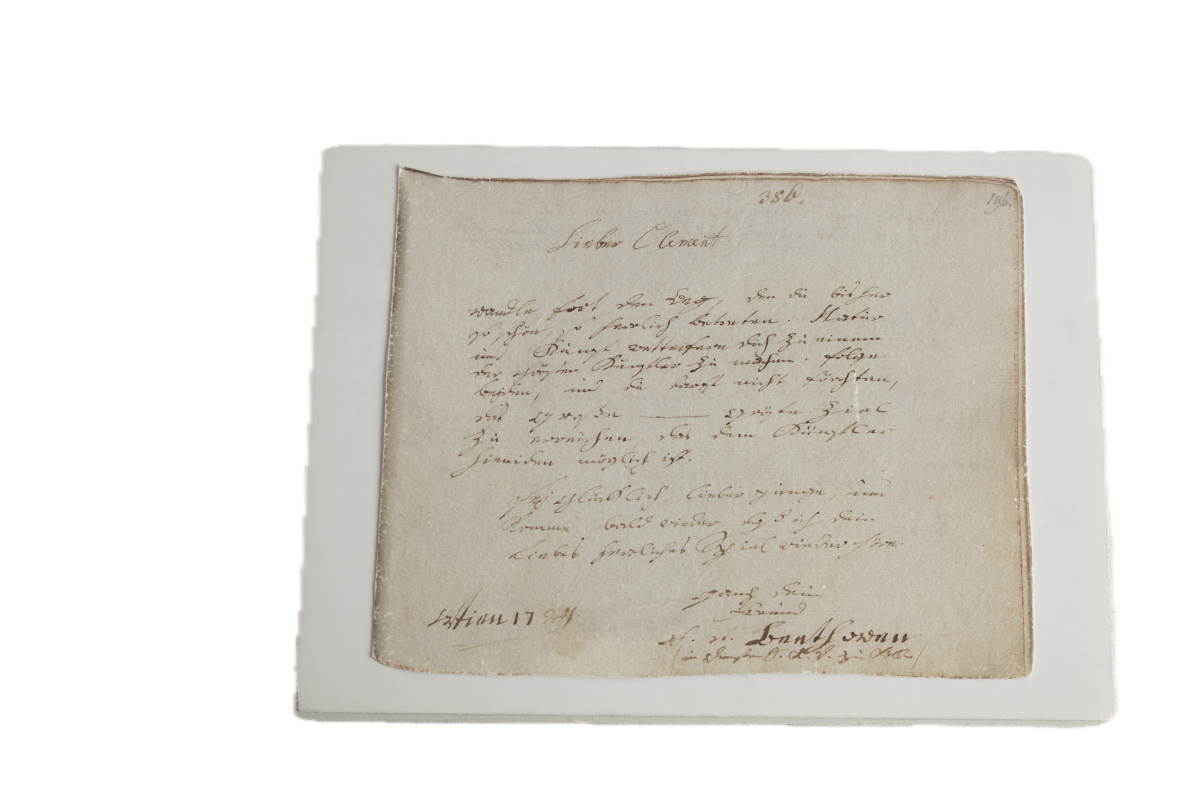 386.
196.
Lieber Clement
wandle fort den Weg, den du bisher
so schön, so herrlich betreten. Natur
und Kunst wetteifern dich zu einem
der grösten Künstler zu machen. folge
beyden, und du darfst nicht fürchten,
das grosse — gröste Ziel
zu erreichen, das dem Künstler
hienieden möglich ist.
sey glücklich, lieber junge, und
komme bald wieder, daß ich dein
liebes herrliches Spiel wieder höre.
ganz dein
Freund
L. v. Beethowen
Wien 1794
(in Diensten S. K. D. zu Köln)